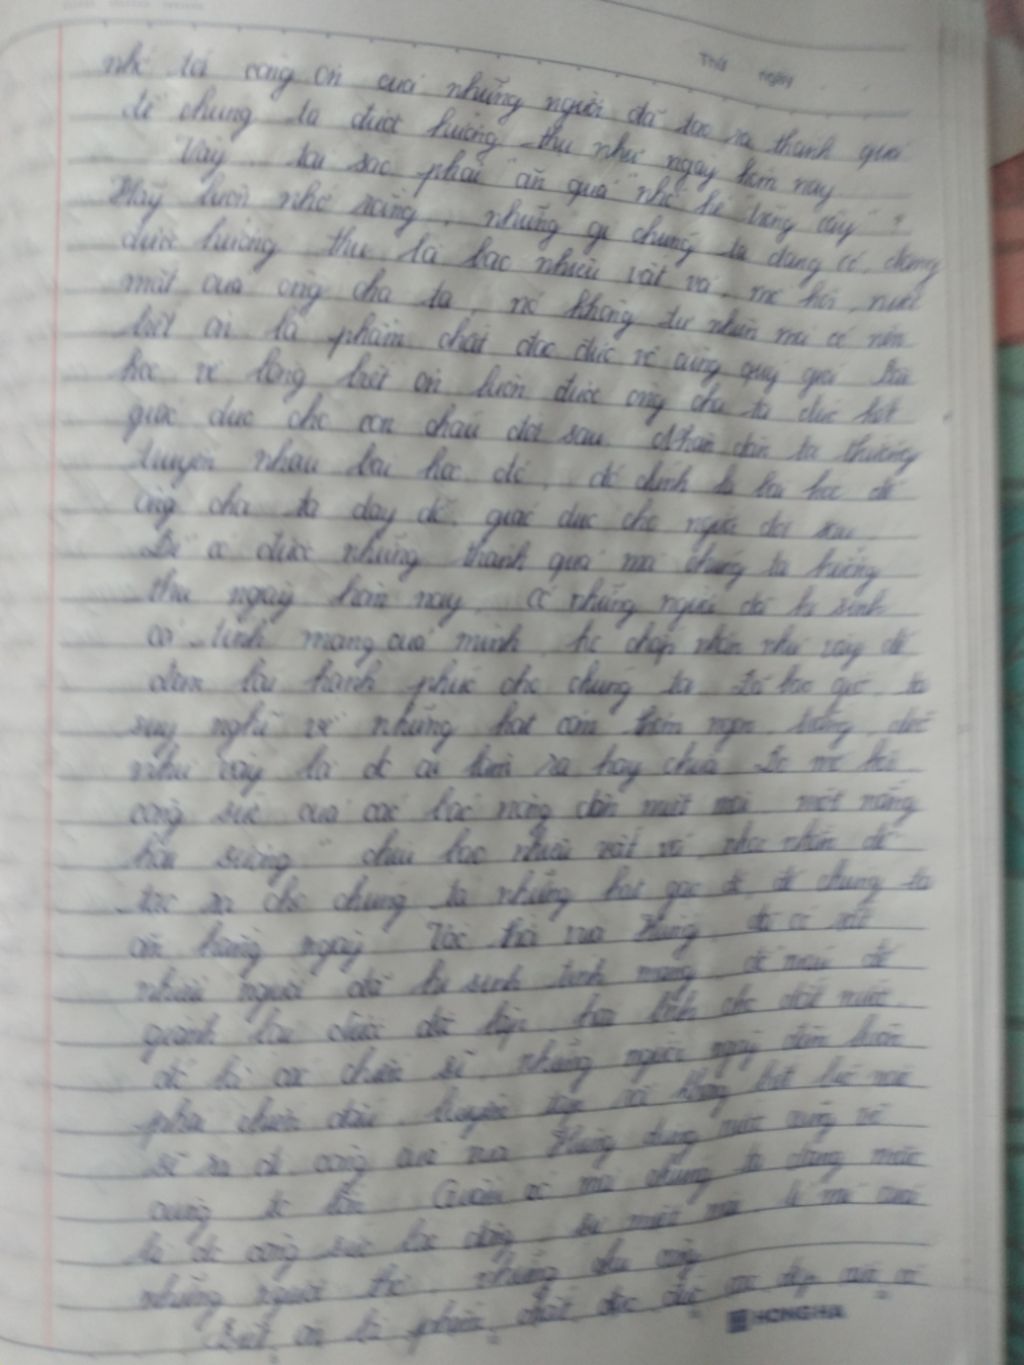 Thứ Ngày
nhớ tới công ơn của những người đã tạo ra thành quả
để chúng ta được hưởng thụ như ngày hôm nay
Vậy tại sao phải "ăn quả nhớ kẻ trồng cây" ?
Hãy luôn nhớ rằng, những gì chúng ta đang có, đang
được hưởng thụ là bao nhiêu vất vả, mồ hôi, nước
mắt của ông cha ta, nó không tự nhiên mà có nên
biết ơn là phẩm chất đạo đức vô cùng quý giá. Bài
học về lòng biết ơn luôn được ông cha ta đúc kết
giáo dục cho con cháu đời sau. Nhân dân ta thường
truyền nhau bài học đó, đó chính là bài học để
ông cha ta dạy dỗ, giáo dục cho người đời sau.
Để có được những thành quả mà chúng ta hưởng
thụ ngày hôm nay. Có những người đã hi sinh
cả tính mạng của mình, họ chấp nhận như vậy để
đem lại hạnh phúc cho chúng ta. Đã bao giờ ta
suy nghĩ về những hạt cơm thơm ngon, trắng
như vậy là do ai làm ra hay chưa. Do mồ hôi
công sức của các bác nông dân một nắng
hai sương" chịu bao nhiêu vất vả, nhọc nhằn để
tạo ra cho chúng ta những hạt gạo đó, để chúng ta
ăn hàng ngày. Vào thời vua Hùng, đã có rất
nhiều người đã hi sinh tính mạng để
giành lại được độc lập, hòa bình cho đất nước
đó là các chiến sĩ, những người ngày đêm luôn
phải chiến đấu, luyện tập
công của vua Hùng dựng nước cũng vô
cùng to lớn. Quần áo mà chúng ta đang mặc
là do công sức lao động, sự
những người thợ, những
Biết ơn là phẩm chất đạo đức
HONG HA